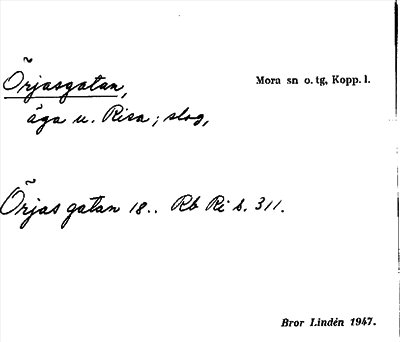 Örjasgatan, Mora sn o. tg, Kopp. l.
äga u. Risa; slog,
Örjas gatan 18.. Rb Ri s. 311.
Bror Lindén 1947.